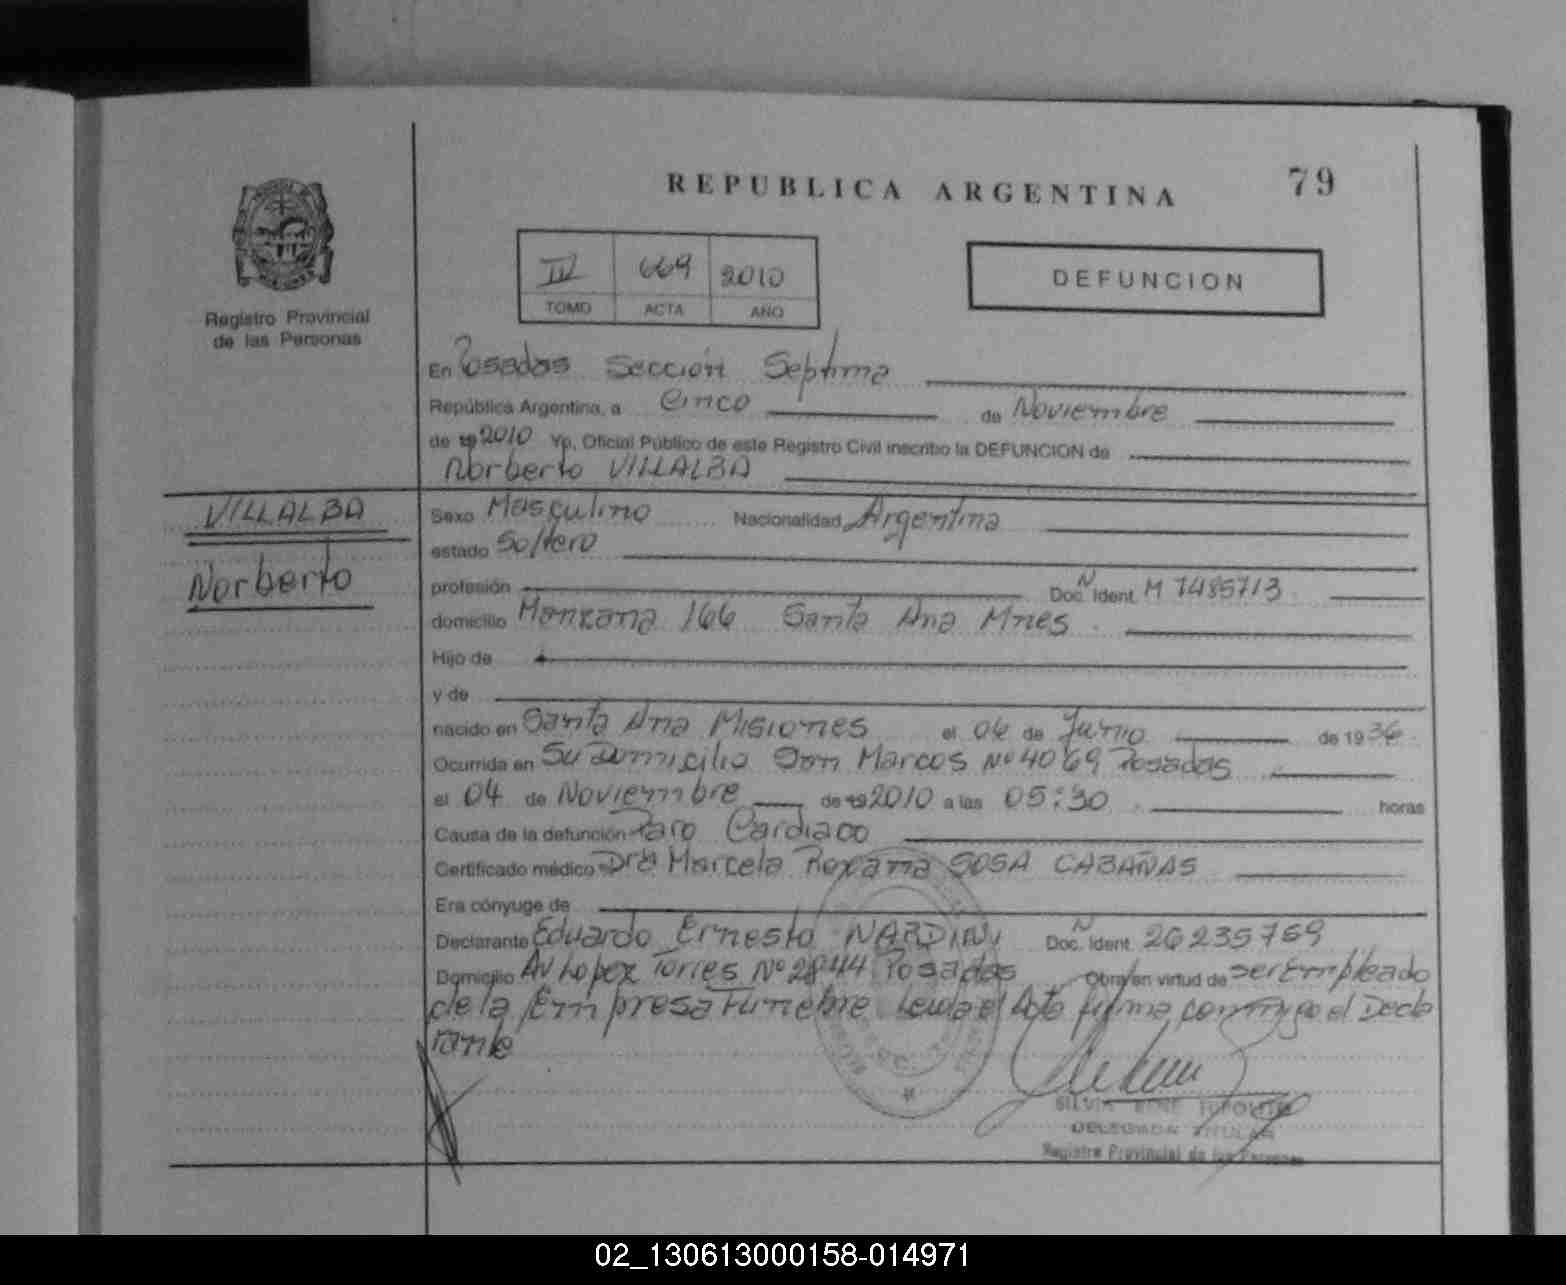 REPUBLICA ARGENTINA
79
III 669 2010
TOMO ACTA AÑO
DEFUNCION
Registro Provincial
de las Personas
En Posadas Sección Septima
República Argentina, a Cinco de Noviembre
de 19 2010 Yo, Oficial Público de este Registro Civil inscribo la DEFUNCION de
Norberto VILLALBA
VILLALBA
Norberto
Sexo Masculino Nacionalidad Argentina
estado Soltero
profesión Doc. N Ident. M 7485713
domicilio Manzana 166 Santa Ana Mnes.
Hijo de
y de
nacido en Santa Ana Misiones el 04 de Junio de 19 36
Ocurrida en Su Domicilio Don Marcos Nº 4069 Posadas
el 04 de Noviembre de 19 2010 a las 05:30 horas
Causa de la defunción Paro Cardiaco
Certificado médico Dra Marcela Roxana SOSA CABAÑAS
Era cónyuge de
Declarante Eduardo Ernesto NARDINI Doc. N Ident. 26235759
Domicilio Av Lopez Torres Nº 2844 Posadas Obra en virtud de ser Empleado
de la Empresa Funebre Leida el Acta firma conmigo el Decla
rante
SILVIA RENE HIPOLITO
DELEGADA TITULAR
Registro Provincial de las Personas
02_130613000158-014971